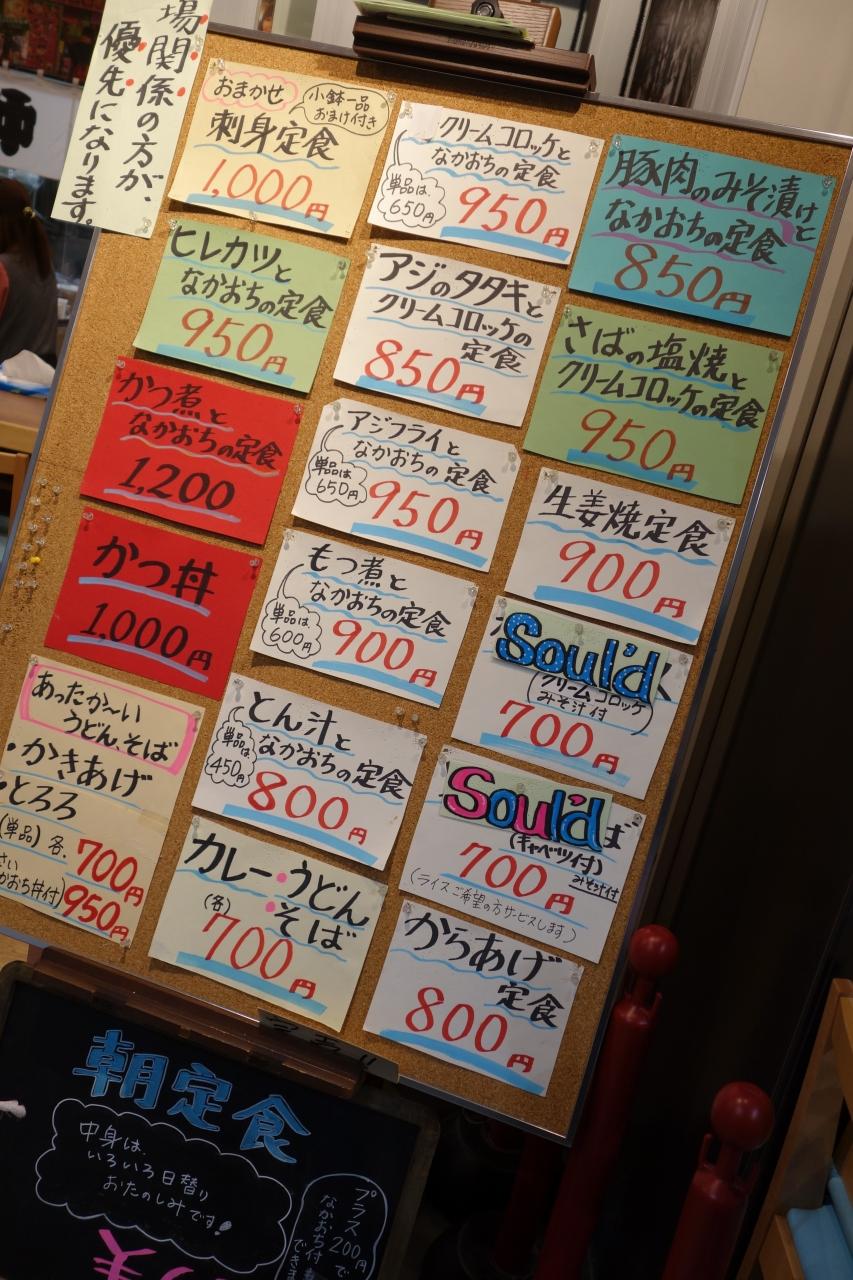 場関係の方が、
優先になります。
おまかせ
小鉢一品
おまけ付き
刺身定食
1,000円
クリームコロッケと
なかおちの定食
単品は、
650円
950円
豚肉のみそ漬けと
なかおちの定食
850円
ヒレカツと
なかおちの定食
950円
アジのタタキと
クリームコロッケの
定食
850円
さばの塩焼と
クリームコロッケの定食
950円
かつ煮と
なかおちの定食
1,200
アジフライと
なかおちの定食
単品は
650円
950円
生姜焼定食
900円
かつ丼
1,000円
もつ煮と
なかおちの定食
単品は
600円
900円
Soul'd
(クリームコロッケ
みそ汁付)
700円
あったか〜い
うどん、そば
・かきあげ
・とろろ
(単品)各.700円
かおち丼付)950円
とん汁と
なかおちの定食
単品は
450円
800円
Soul'd
ば
(キャベツ付)
みそ汁付
700円
(ライスご希望の方サービスします)
カレー・うどん
・そば
(各)
700円
からあげ
定食
800円
朝定食
中身は、
いろいろ日替り
おたのしみです!
プラス200円で
なかおち付